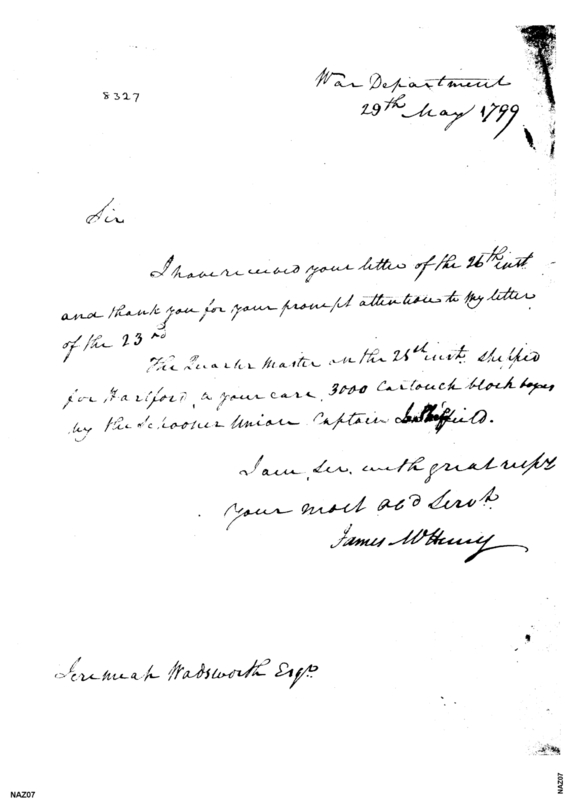 8327
War Department
29th May 1799
Sir
I have received your letter of the 26th inst
and thank you for your prompt attention to my letter
of the 23rd
The Quarter Master on the 28th inst. shipped
for Hartford, a your care, 3000 Cartouch block boxes
by the Schooner Union Captain
I am, Sir, with great respt
your most obd Servt.
James McHenry
Jeremiah Wadsworth Esqr.
NAZ07
NAZ07